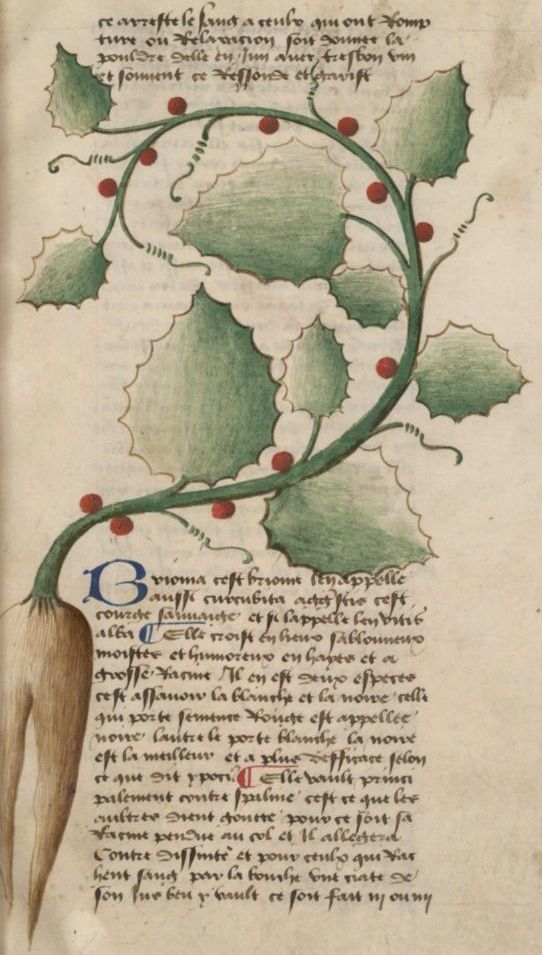 ce arreste le sang a ceulx qui ont Romp
ture ou Relaxacion soit donnee la
pouldre delle en Jun auec tresbon vin
et souuent ce Ressoude et garist
Brioma cest brione len appelle
aussi curcubita agrestis cest
courge sauuaige et si lappelle len vitis
alba ¶ Elle croist en lieux sablonneux
moistes et humoreux en hayes et a
grosse Racine Il en est deux especes
cest assauoir la blanche et la noire celle
qui porte semence Rouge est appellee
noire lautre le porte blanche la noire
est la meilleur et a plus defficace selon
ce que dit ypocr ¶ Elle vault princi
palement contre cest ce que les
aultres dient goutte pour ce soit sa
Racine pendue au col et Il allegera
Contre dissintē et pour ceulx qui Rac
hent sang par la bouche vne ciate de
son Jus beu y vault ce soit fait iii ou iiii